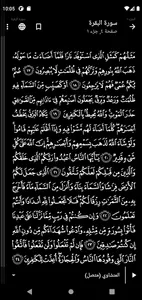 10:05
سورة البقرة
صفحة ٤، جزء ١
مَثَلُهُمْ كَمَثَلِ ٱلَّذِى ٱسْتَوْقَدَ نَارًا فَلَمَّآ أَضَآءَتْ مَا حَوْلَهُۥ
ذَهَبَ ٱللَّهُ بِنُورِهِمْ وَتَرَكَهُمْ فِى ظُلُمَٰتٍ لَّا يُبْصِرُونَ ١٧
صُمٌّۢ بُكْمٌ عُمْىٌ فَهُمْ لَا يَرْجِعُونَ ١٨ أَوْ كَصَيِّبٍ مِّنَ ٱلسَّمَآءِ
فِيهِ ظُلُمَٰتٌ وَرَعْدٌ وَبَرْقٌ يَجْعَلُونَ أَصَٰبِعَهُمْ فِىٓ ءَاذَانِهِم
مِّنَ ٱلصَّوَٰعِقِ حَذَرَ ٱلْمَوْتِ وَٱللَّهُ مُحِيطٌۢ بِٱلْكَٰفِرِينَ ١٩ يَكَادُ
ٱلْبَرْقُ يَخْطَفُ أَبْصَٰرَهُمْ كُلَّمَآ أَضَآءَ لَهُم مَّشَوْا۟ فِيهِ وَإِذَآ أَظْلَمَ عَلَيْهِمْ
قَامُوا۟ وَلَوْ شَآءَ ٱللَّهُ لَذَهَبَ بِسَمْعِهِمْ وَأَبْصَٰرِهِمْ إِنَّ ٱللَّهَ عَلَىٰ كُلِّ
شَىْءٍ قَدِيرٌ ٢٠ يَٰٓأَيُّهَا ٱلنَّاسُ ٱعْبُدُوا۟ رَبَّكُمُ ٱلَّذِى خَلَقَكُمْ
وَٱلَّذِينَ مِن قَبْلِكُمْ لَعَلَّكُمْ تَتَّقُونَ ٢١ ٱلَّذِى جَعَلَ لَكُمُ
ٱلْأَرْضَ فِرَٰشًا وَٱلسَّمَآءَ بِنَآءً وَأَنزَلَ مِنَ ٱلسَّمَآءِ مَآءً فَأَخْرَجَ
بِهِۦ مِنَ ٱلثَّمَرَٰتِ رِزْقًا لَّكُمْ فَلَا تَجْعَلُوا۟ لِلَّهِ أَندَادًا وَأَنتُمْ
تَعْلَمُونَ ٢٢ وَإِن كُنتُمْ فِى رَيْبٍ مِّمَّا نَزَّلْنَا عَلَىٰ عَبْدِنَا
فَأْتُوا۟ بِسُورَةٍ مِّن مِّثْلِهِۦ وَٱدْعُوا۟ شُهَدَآءَكُم مِّن دُونِ ٱللَّهِ
إِن كُنتُمْ صَٰدِقِينَ ٢٣ فَإِن لَّمْ تَفْعَلُوا۟ وَلَن تَفْعَلُوا۟ فَٱتَّقُوا۟
ٱلنَّارَ ٱلَّتِى وَقُودُهَا ٱلنَّاسُ وَٱلْحِجَارَةُ أُعِدَّتْ لِلْكَٰفِرِينَ ٢٤